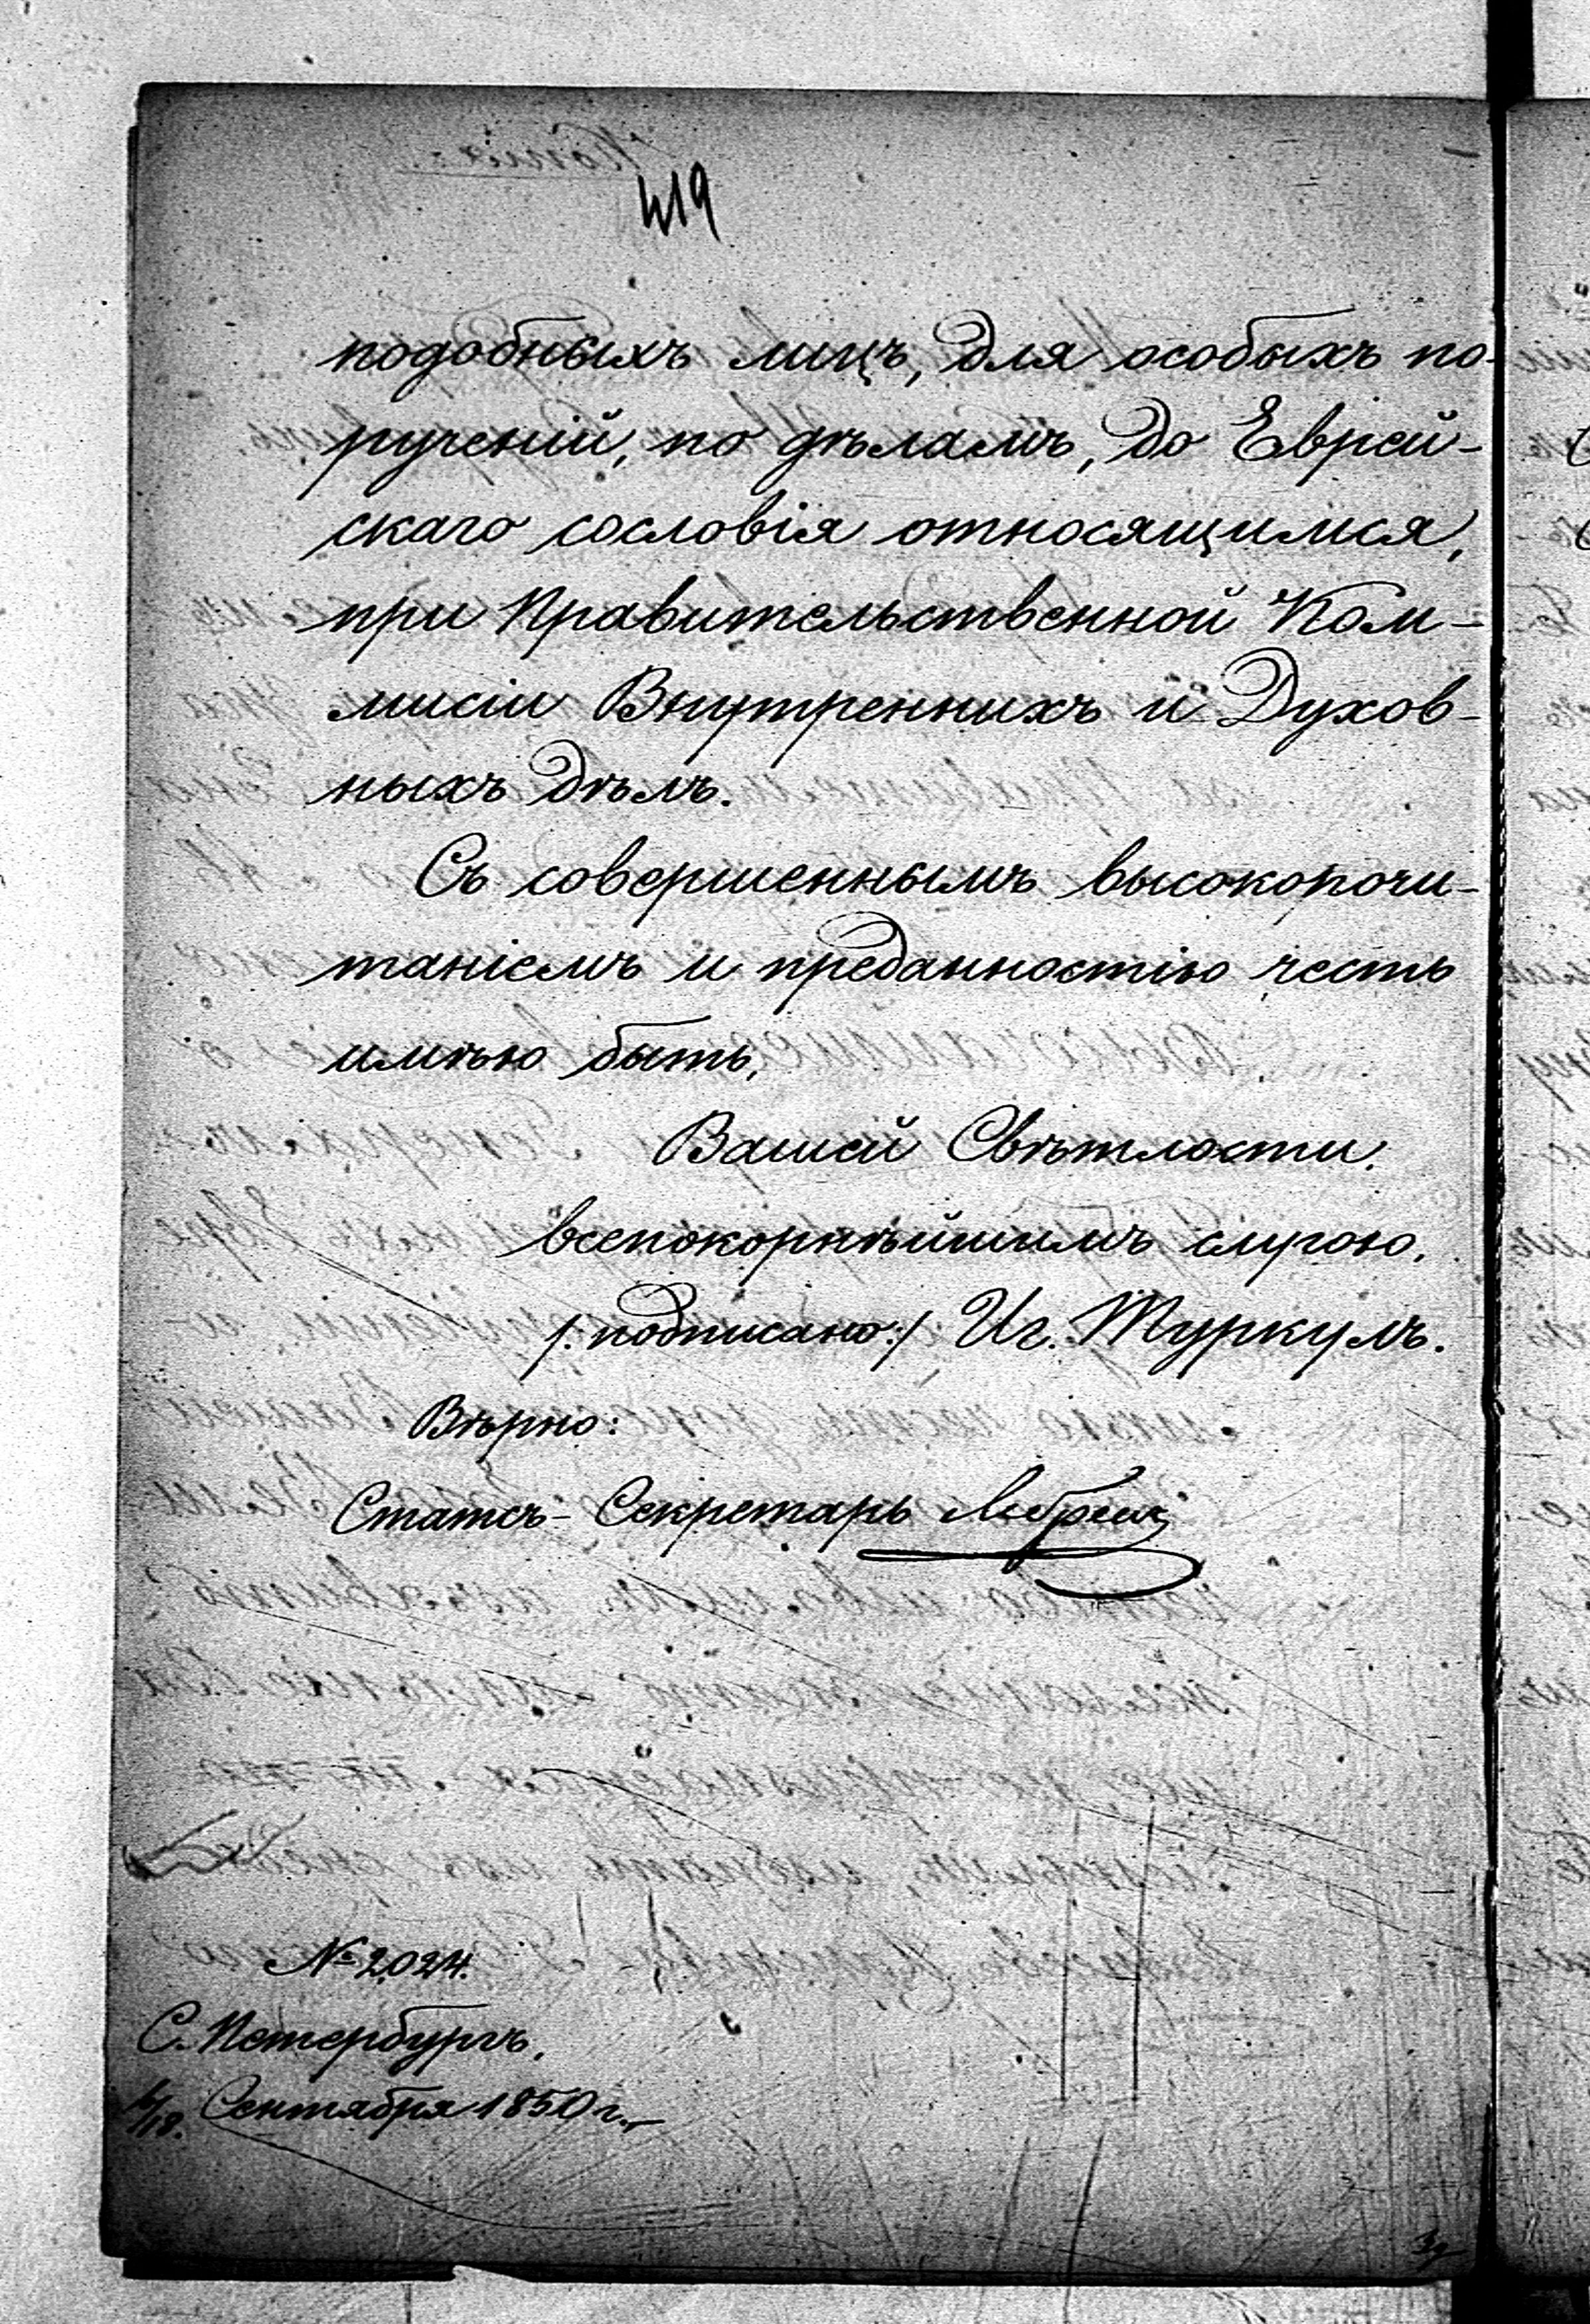 419
подобныхъ лицъ, для особыхъ по-
рученій, по дѣламъ, до Еврей-
скаго сословія относящимся,
при Правительственной Ком-
мисіи Внутреннихъ и Духов-
ныхъ Дѣлъ.
Съ совершеннымъ высокопочи-
таніемъ и преданностію честь
имѣю быть,
Вашей Свѣтлости.
всепокорнѣйшимъ слугою.
/:подписано:/ Иг. Туркулъ.
Вѣрно:
Статсъ-Секретарь
№ 2024.
С. Петербургъ,
6/18. Сентября 1850 г.